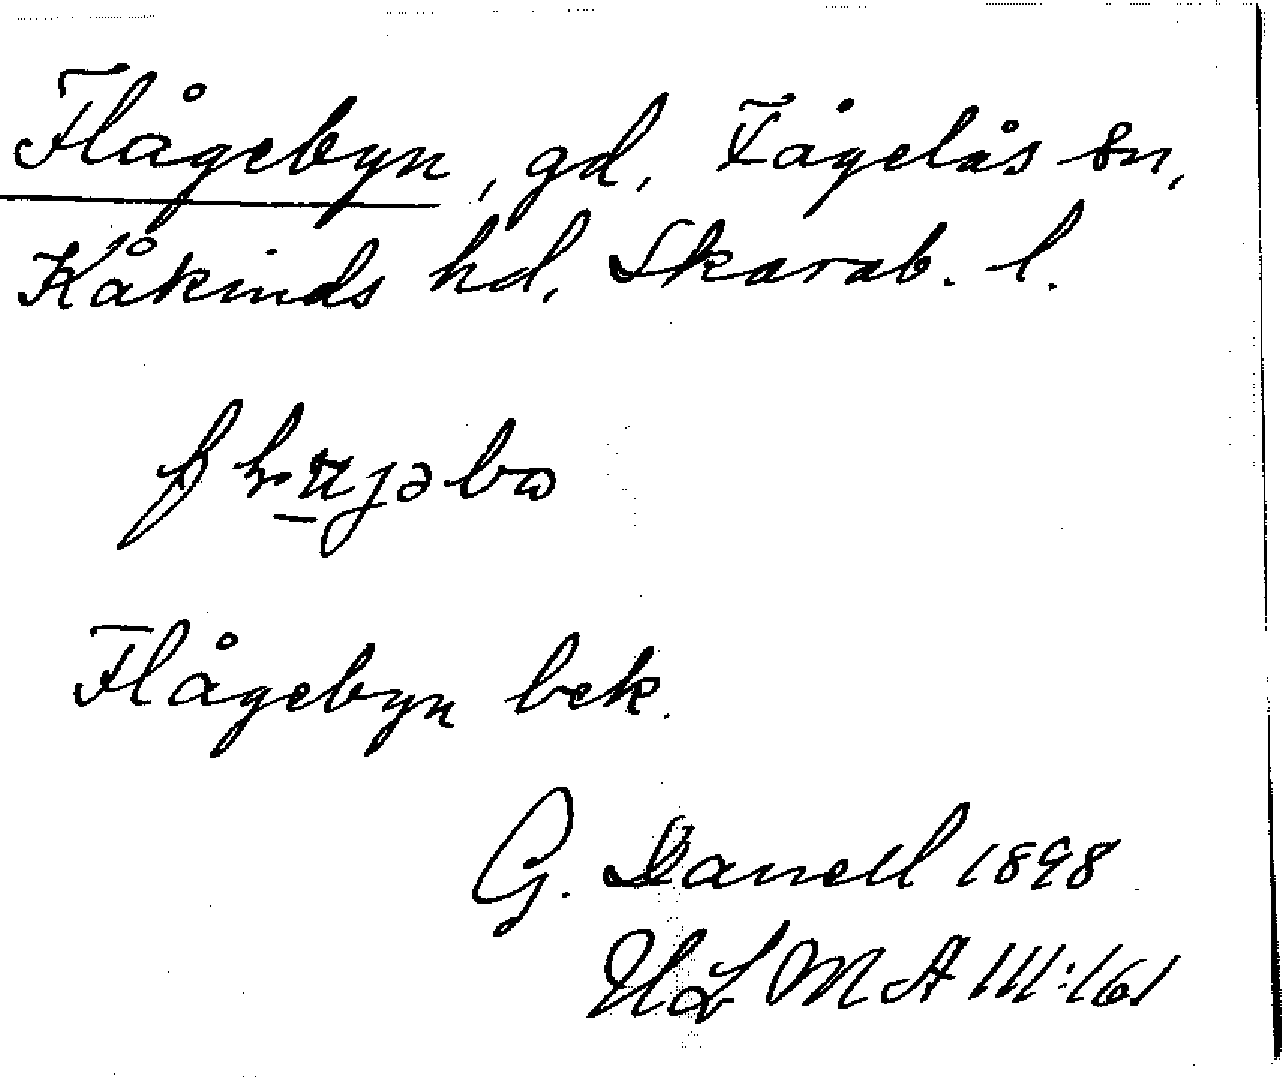 Flågebyn, gd, Fågelås sn,
Kåkinds hd, Skarab. l.
Flågebyn bek.
G. Danell 1898
ULMA 111:161